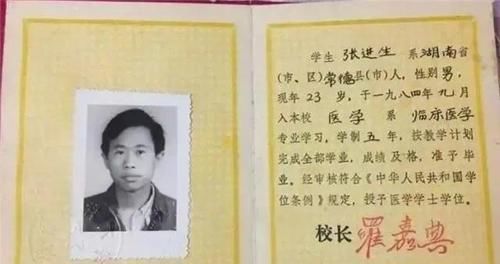 学生 张进生 系湖南省
(市、区)常德县(市)人，性别男，
现年 23 岁，于一九八四年九月
入本校 医学 系 临床医学
专业学习，学制 五 年，按教学计划
完成全部学业，成绩及格，准予毕
业。经审核符合《中华人民共和国学
位条例》规定，授予医学学士学位。
校长 罗嘉典